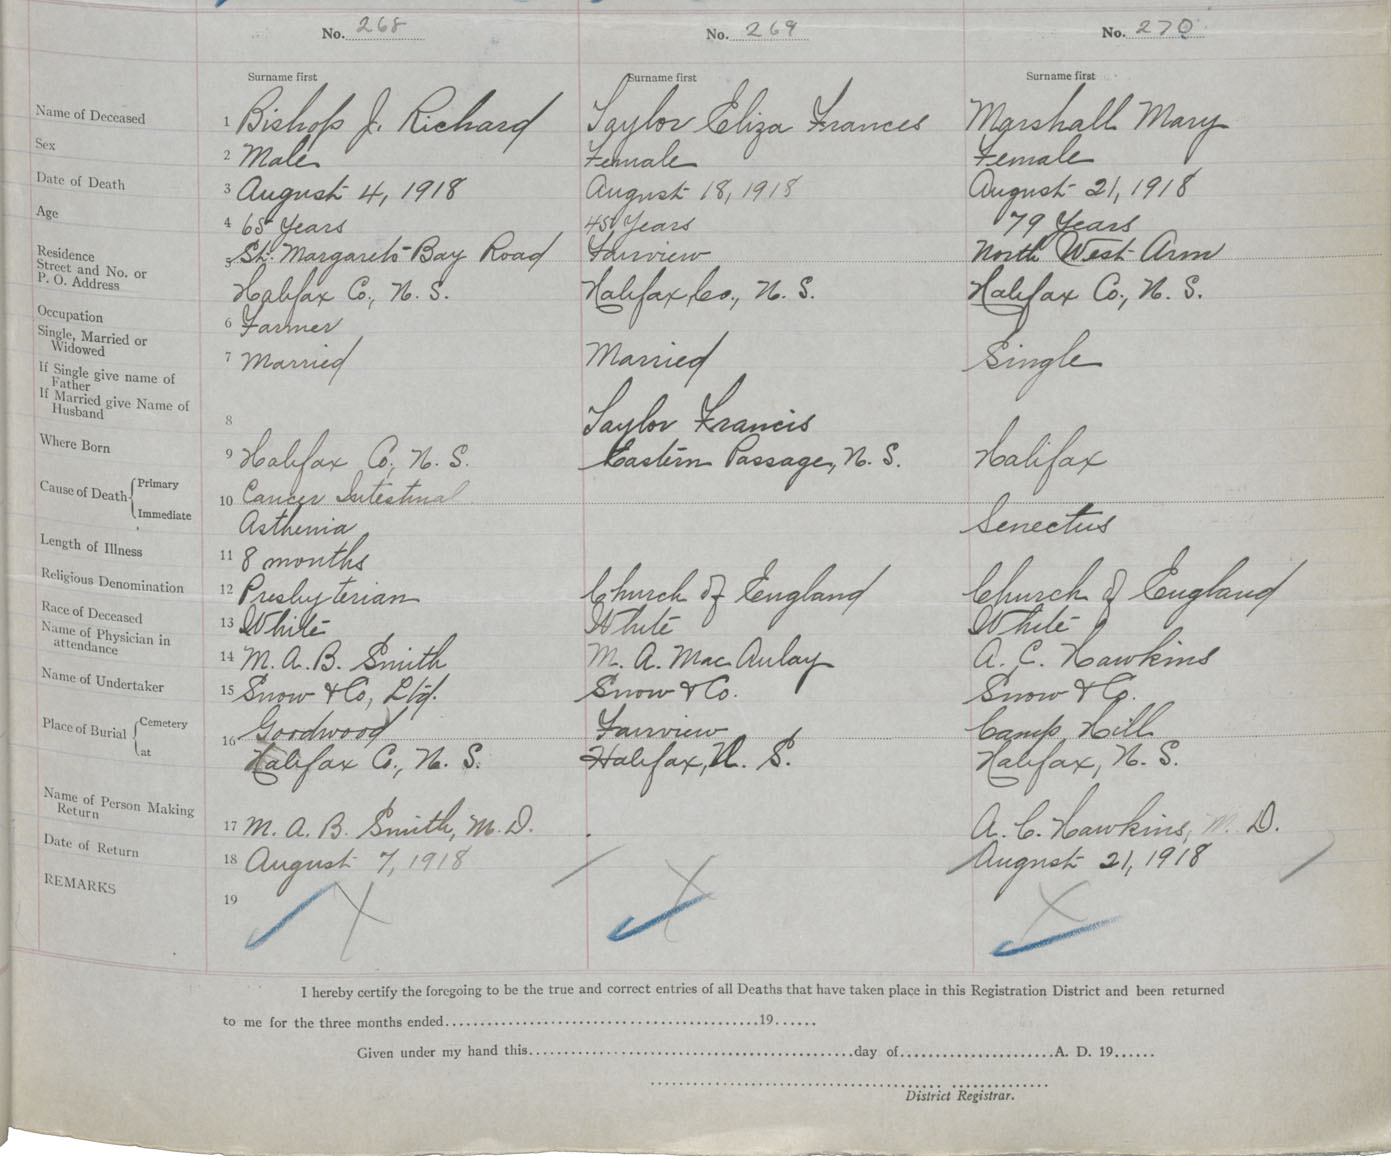 No. 268 No. 269 No. 270
Surname first Surname first Surname first
Name of Deceased 1 Bishop J. Richard Taylor Eliza Frances Marshall Mary
Sex 2 Male Female Female
Date of Death 3 August 4, 1918 August 18, 1918 August 21, 1918
Age 4 65 Years 45 Years 79 Years
Residence
Street and No. or 5 St. Margarets Bay Road Fairview North West Arm
P. O. Address Halifax Co., N. S. Halifax, Co., N. S. Halifax Co., N. S.
Occupation 6 Farmer
Single, Married or
Widowed 7 Married Married Single
If Single give name of
Father
If Married give Name of
Husband 8 Taylor Francis
Where Born 9 Halifax Co., N. S. Eastern Passage, N. S. Halifax
Cause of Death Primary 10 Cancer Intestinal
Immediate Asthenia Senectus
Length of Illness 11 8 months
Religious Denomination 12 Presbyterian Church of England Church of England
Race of Deceased 13 White White White
Name of Physician in
attendance 14 M. A. B. Smith M. A. MacAulay A. C. Hawkins
Name of Undertaker 15 Snow & Co., Ltd. Snow & Co. Snow & Co.
Place of Burial Cemetery 16 Goodwood Fairview Camp Hill
at Halifax Co., N. S. Halifax, N. S. Halifax, N. S.
Name of Person Making
Return 17 M. A. B. Smith, M. D. A. C. Hawkins, M. D.
Date of Return 18 August 7, 1918 August 21, 1918
REMARKS 19
I hereby certify the foregoing to be the true and correct entries of all Deaths that have taken place in this Registration District and been returned
to me for the three months ended........................................19......
Given under my hand this..........................................day of......................A. D. 19......
District Registrar.